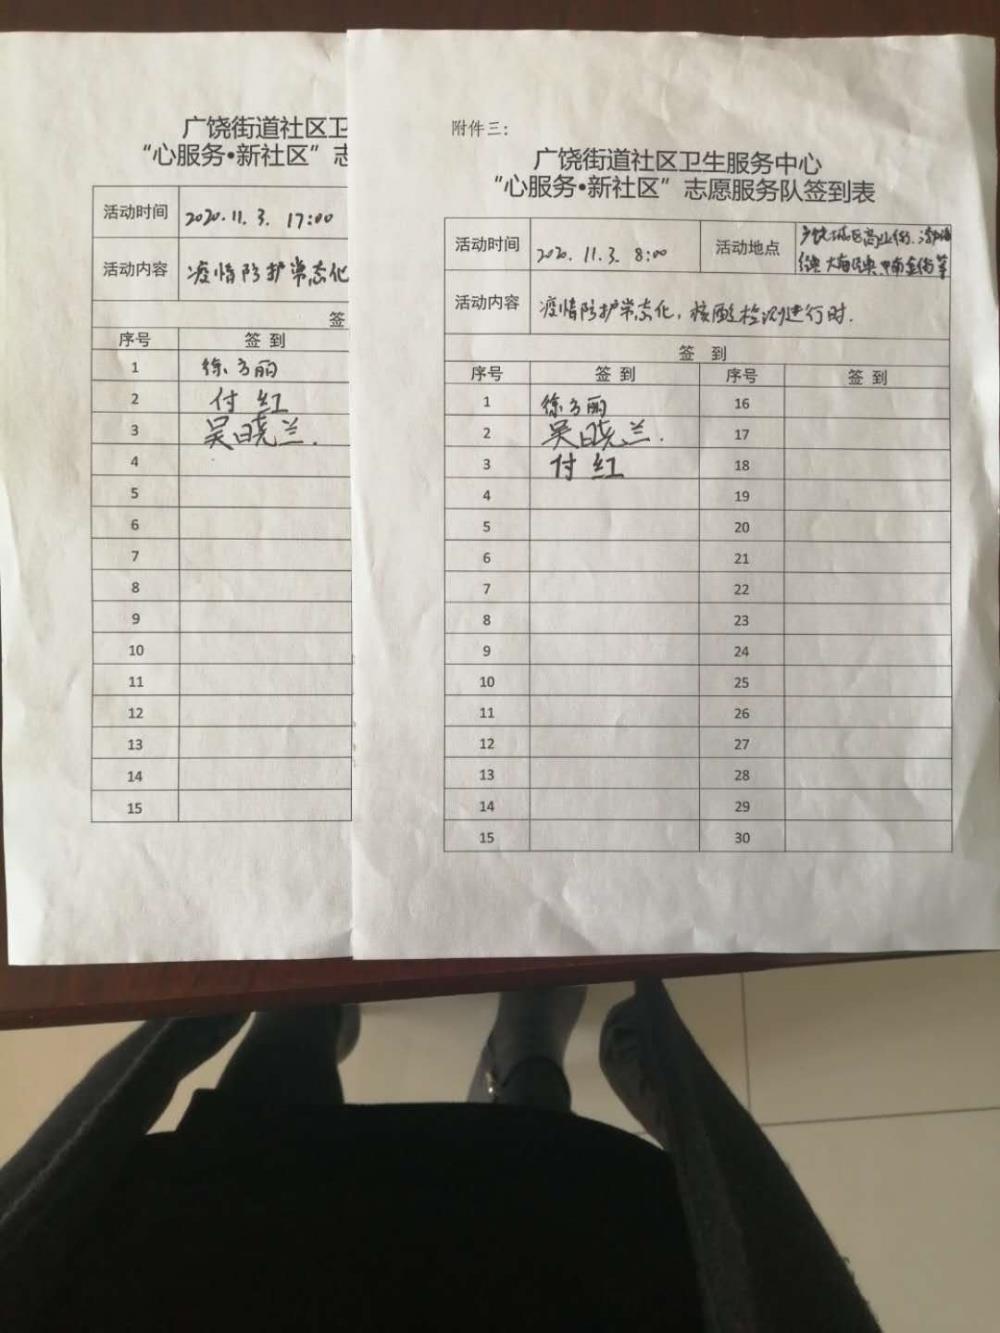 广饶街道社区卫
“心服务•新社区”志
活动时间 2020.11.3. 17:00
活动内容 疫情防护常态化
签
序号 签到
1 徐方丽
2 付红
3 吴晓兰.
4
5
6
7
8
9
10
11
12
13
14
15
附件三：
广饶街道社区卫生服务中心
“心服务•新社区”志愿服务队签到表
活动时间 2020.11.3. 8:00 活动地点 广饶城区商业街.
等
活动内容 疫情防护常态化，核酸检测进行时.
签到
序号 签到 序号 签到
1 徐方丽 16
2 吴晓兰. 17
3 付红 18
4 19
5 20
6 21
7 22
8 23
9 24
10 25
11 26
12 27
13 28
14 29
15 30